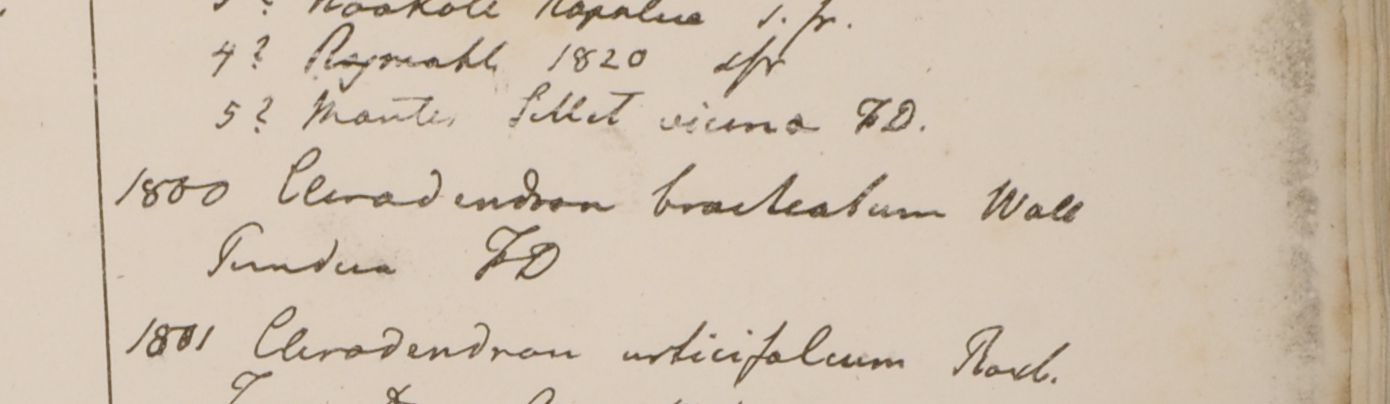 3? Nookote Napalia s. fr.
4? Rajmahl 1820 sfr
5? Montes Sillet vicina FD.
1800 Clerodendron bracteatum Wall
Tundua FD
1801 Clerodendron urticifolium Roxb.